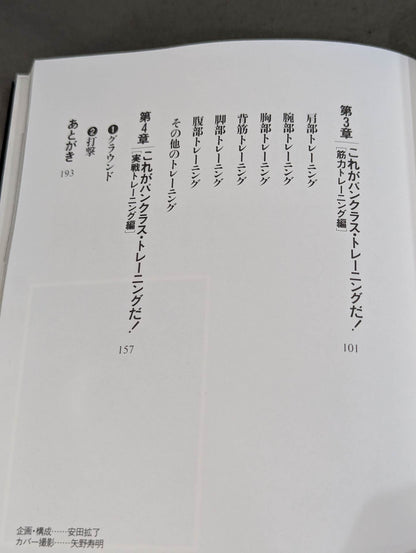 第3章 これがパンクラス・トレーニングだ!
[筋力トレーニング編] 101
肩部トレーニング
腕部トレーニング
胸部トレーニング
背筋トレーニング
脚部トレーニング
腹部トレーニング
その他のトレーニング
第4章 これがパンクラス・トレーニングだ!
[実戦トレーニング編] 157
❶グラウンド
❷打撃
あとがき 193
企画・構成……安田拡了
カバー撮影……矢野寿明